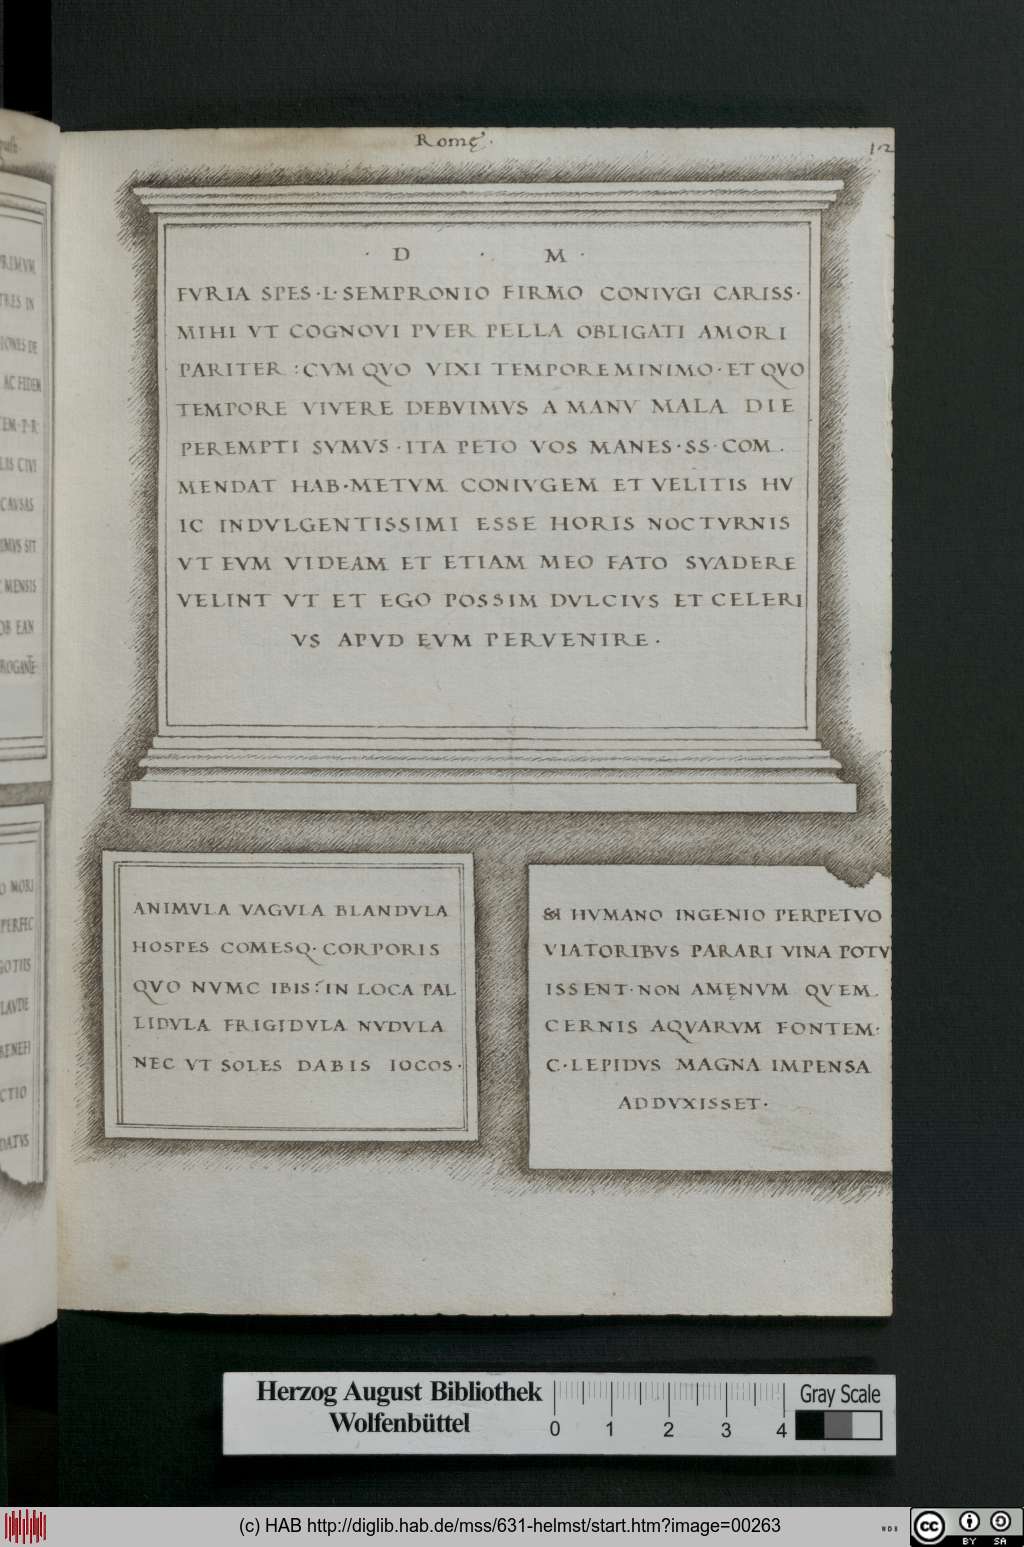 Romę.
12
· D · M ·
FVRIA SPES · L · SEMPRONIO FIRMO CONIVGI CARISS ·
MIHI VT COGNOVI PVER PELLA OBLIGATI AMORI
PARITER : CVM QVO VIXI TEMPORE MINIMO · ET QVO
TEMPORE VIVERE DEBVIMVS A MANV MALA DIE
PEREMPTI SVMVS · ITA PETO VOS MANES · SS · COM .
MENDAT HAB · METVM CONIVGEM ET VELITIS HV
IC INDVLGENTISSIMI ESSE HORIS NOCTVRNIS
VT EVM VIDEAM ET ETIAM MEO FATO SVADERE
VELINT VT ET EGO POSSIM DVLCIVS ET CELERI
VS APVD EVM PERVENIRE ·
ANIMVLA VAGVLA BLANDVLA
HOSPES COMESQ · CORPORIS
QVO NVMC IBIS : IN LOCA PAL
LIDVLA FRIGIDVLA NVDVLA
NEC VT SOLES DABIS IOCOS ·
HVMANO INGENIO PERPETVO
VIATORIBVS PARARI VINA POTV
ISSENT · NON AMĘNVM QVEM
CERNIS AQVARVM FONTEM :
C · LEPIDVS MAGNA IMPENSA
ADDVXISSET ·
PRIMVM
TRES IN
IONES DE
AC FEDEM
TEM · P · R
LIS CIVI
CAVSAS
IMVS SIT
MENSIS
OB EAN
ROGANTE
O MORI
PERFEC
GOTIIS
LAVDE
BENEFI
CTIO
DATVS
Herzog August Bibliothek
Wolfenbüttel
0 1 2 3 4
Gray Scale
(c) HAB http://diglib.hab.de/mss/631-helmst/start.htm?image=00263
WDB
cc BY SA